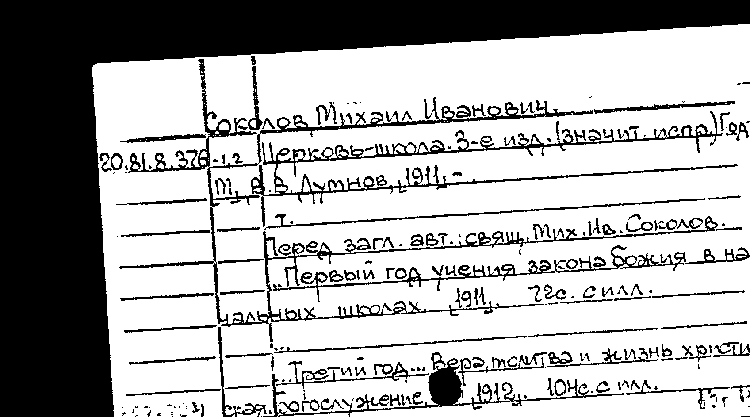 Соколов, Михаил Иванович.
20.81.8.376-1,2 Церковь-школа. 3-е изд. (значит. испр.) Год
М., В.В. Думнов, [1911] -.
т.
Перед загл. авт.: свящ. Мих. Ив. Соколов.
...Первый год учения закона божия в на
чальных школах. [1911]. 72с. с илл.
...
...Третий год... Вера, молитва и жизнь христи
ская. Богослужение. [1912]. 104с. с илл.